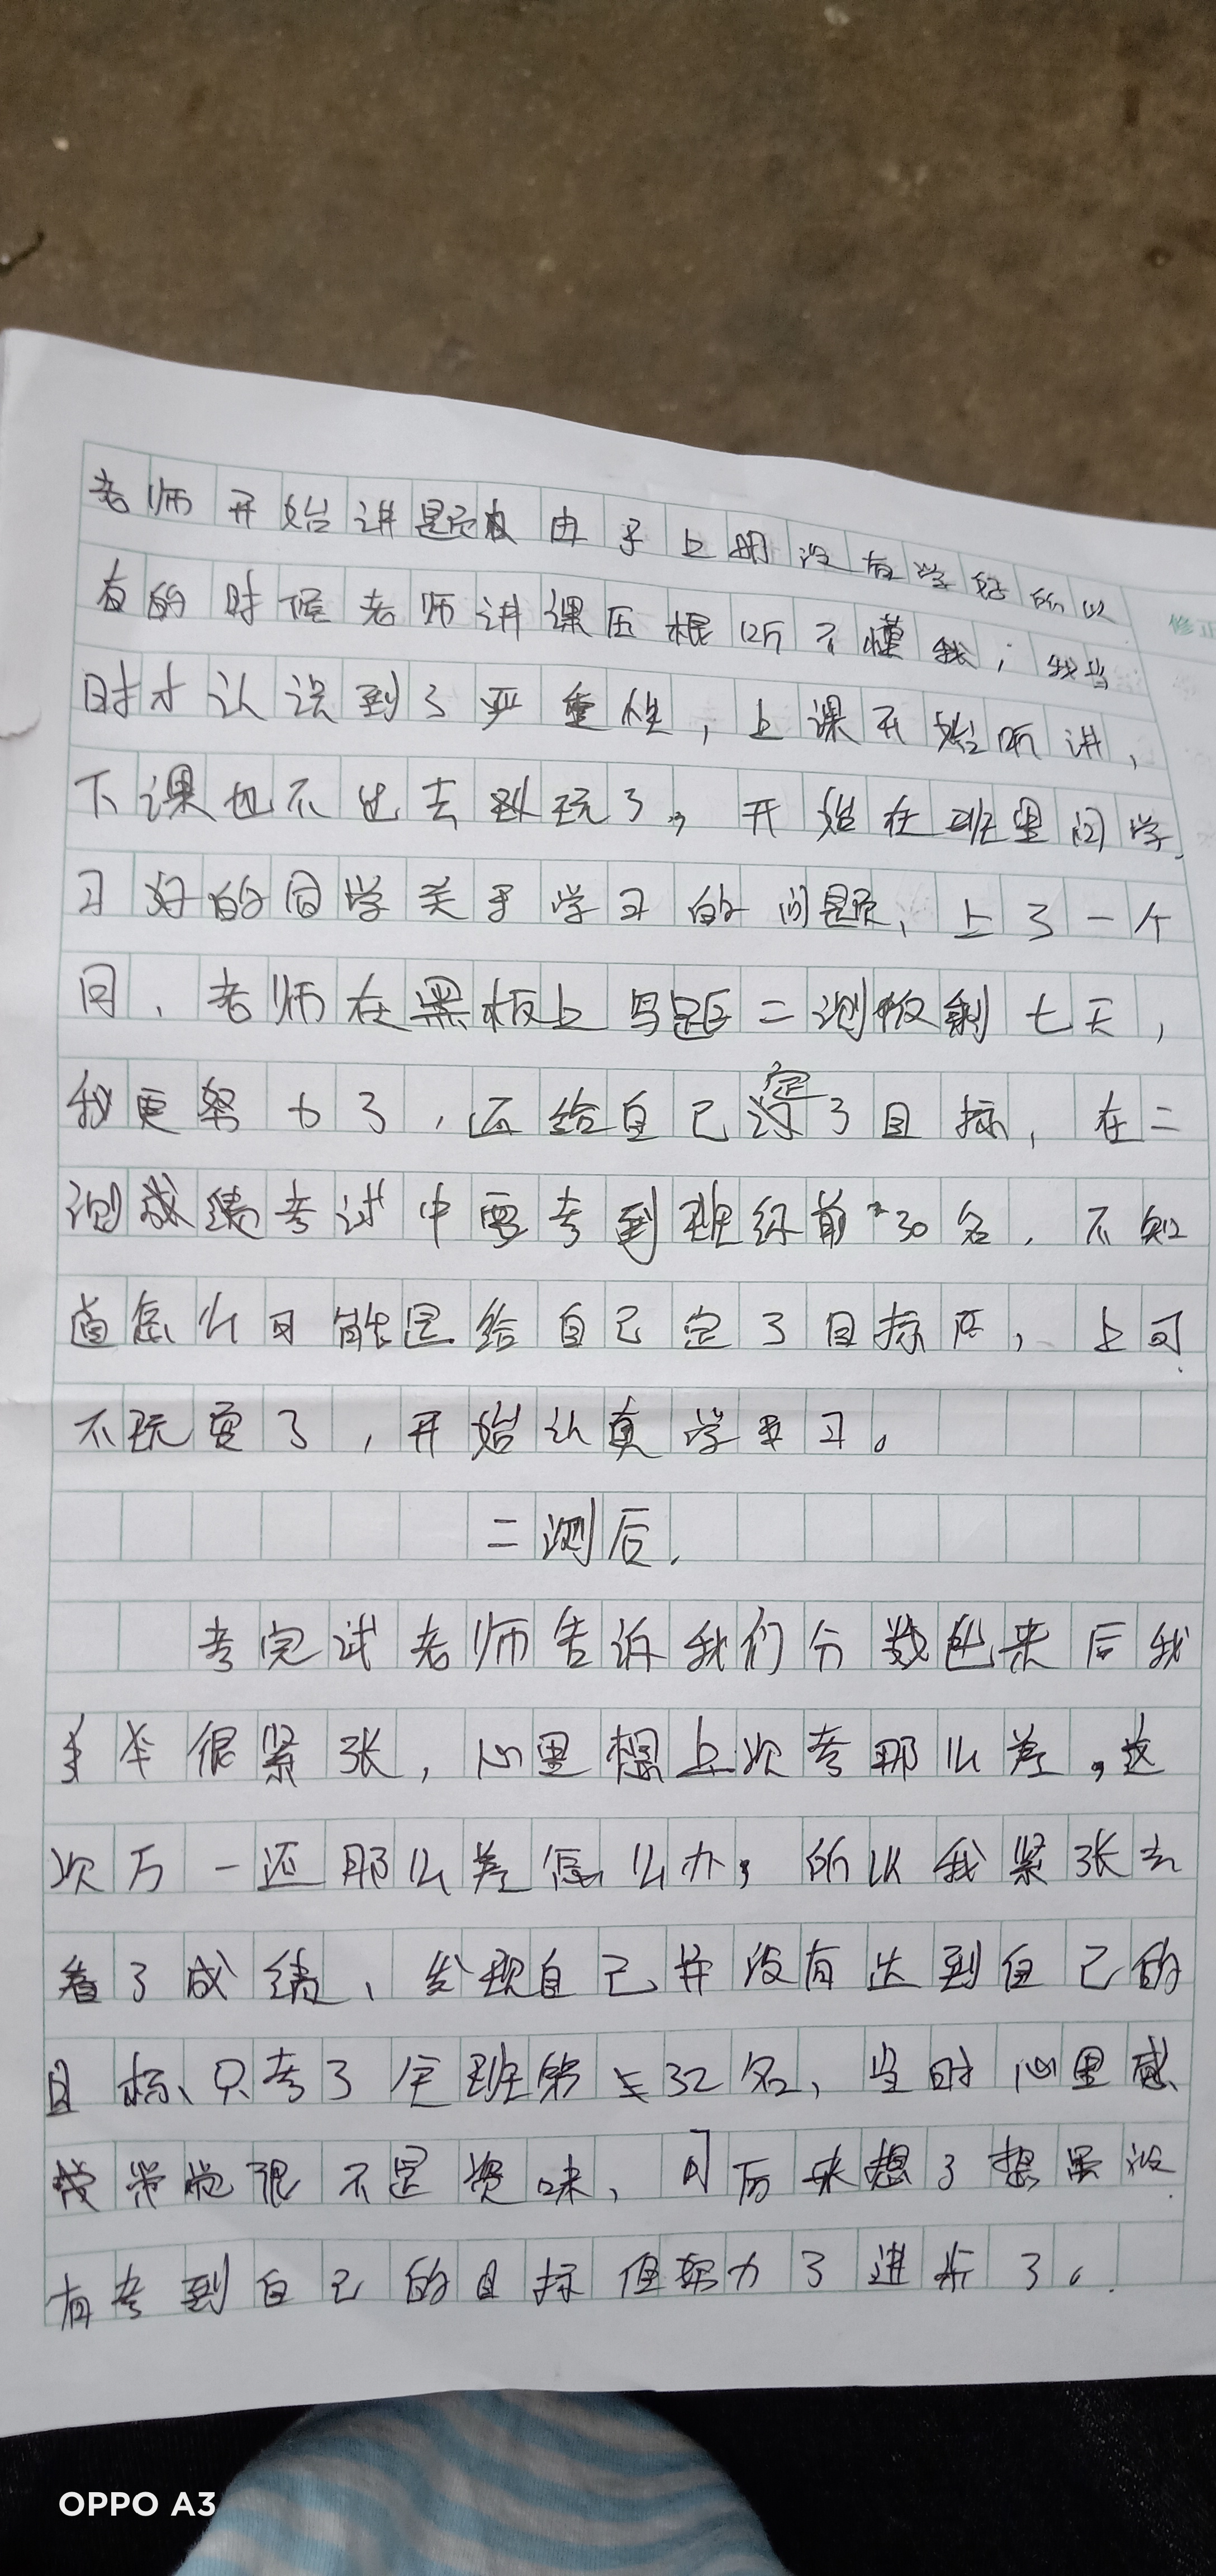 老师开始讲题由于上期没有学好所以
有的时候老师讲课压根听不懂我,我当
时才认识到了严重性,上课开始听讲,
下课也不出去玩了,开始在班里问学
习好的同学关于学习的问题,上了一个
周、老师在黑板上写距二测仅剩七天,
我更努力了,还给自己定了目标,在二
测成绩考试中要考到班级前30名,不知
道怎么可能是给自己定了目标后,上司
不玩耍了,开始认真学习。
二测后.
考完试老师告诉我们分数出来后我
很紧张,心里想上次考那么差,这
次万一还那么差怎么办,所以我紧张去
看了成绩、发现自己并没有达到自己的
目标、只考了全班第32名,当时心里感
觉很不是资味,可后来想了想虽没
有考到自己的目标但努力了进步了。
修正
OPPO A3